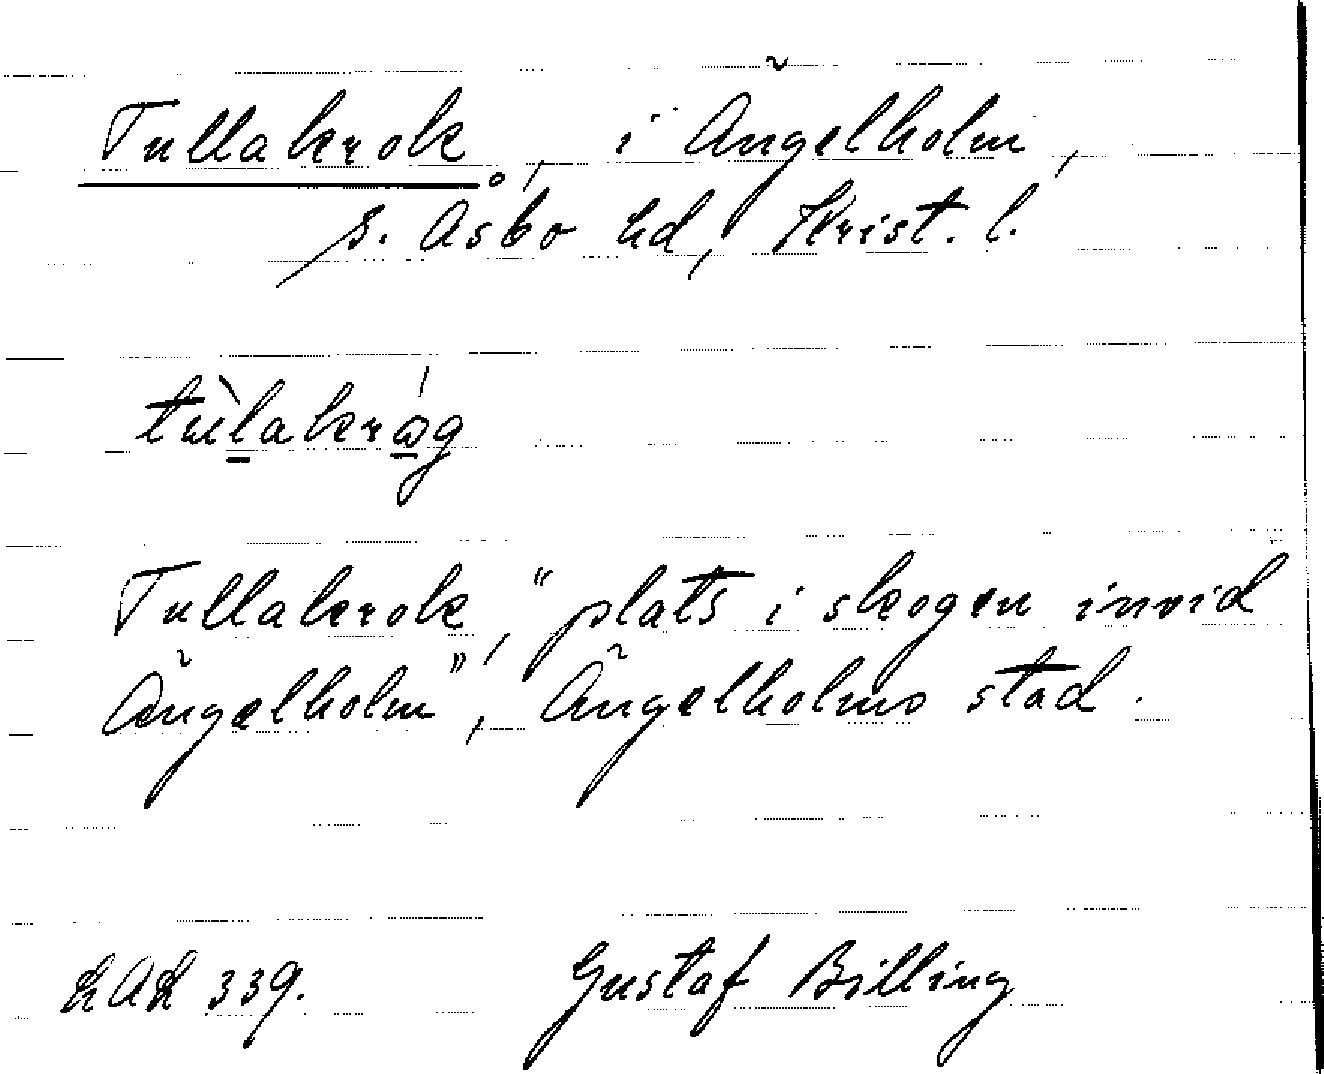 Tullakrok, i Ängelholm,
S. Åsbo hd, Krist. l.
tùlakrǻg
Tullakrok, "plats i skogen invid
Ängelholm", Ängelholms stad.
LAL 339. Gustaf Billing